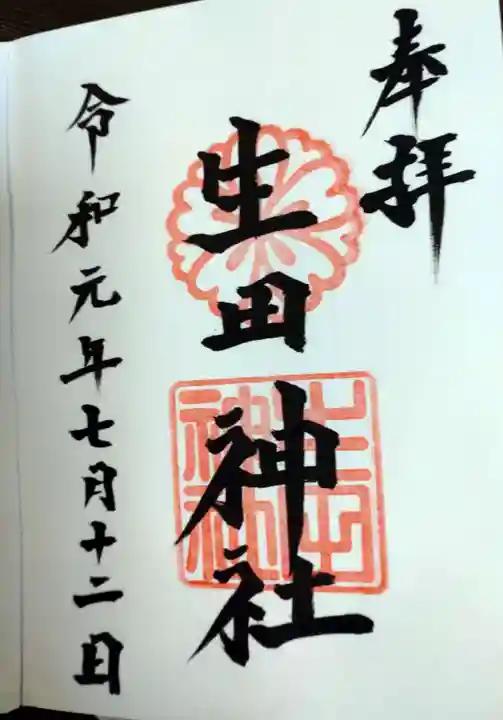 奉拝
生田神社
生田神社
令和元年七月十二日